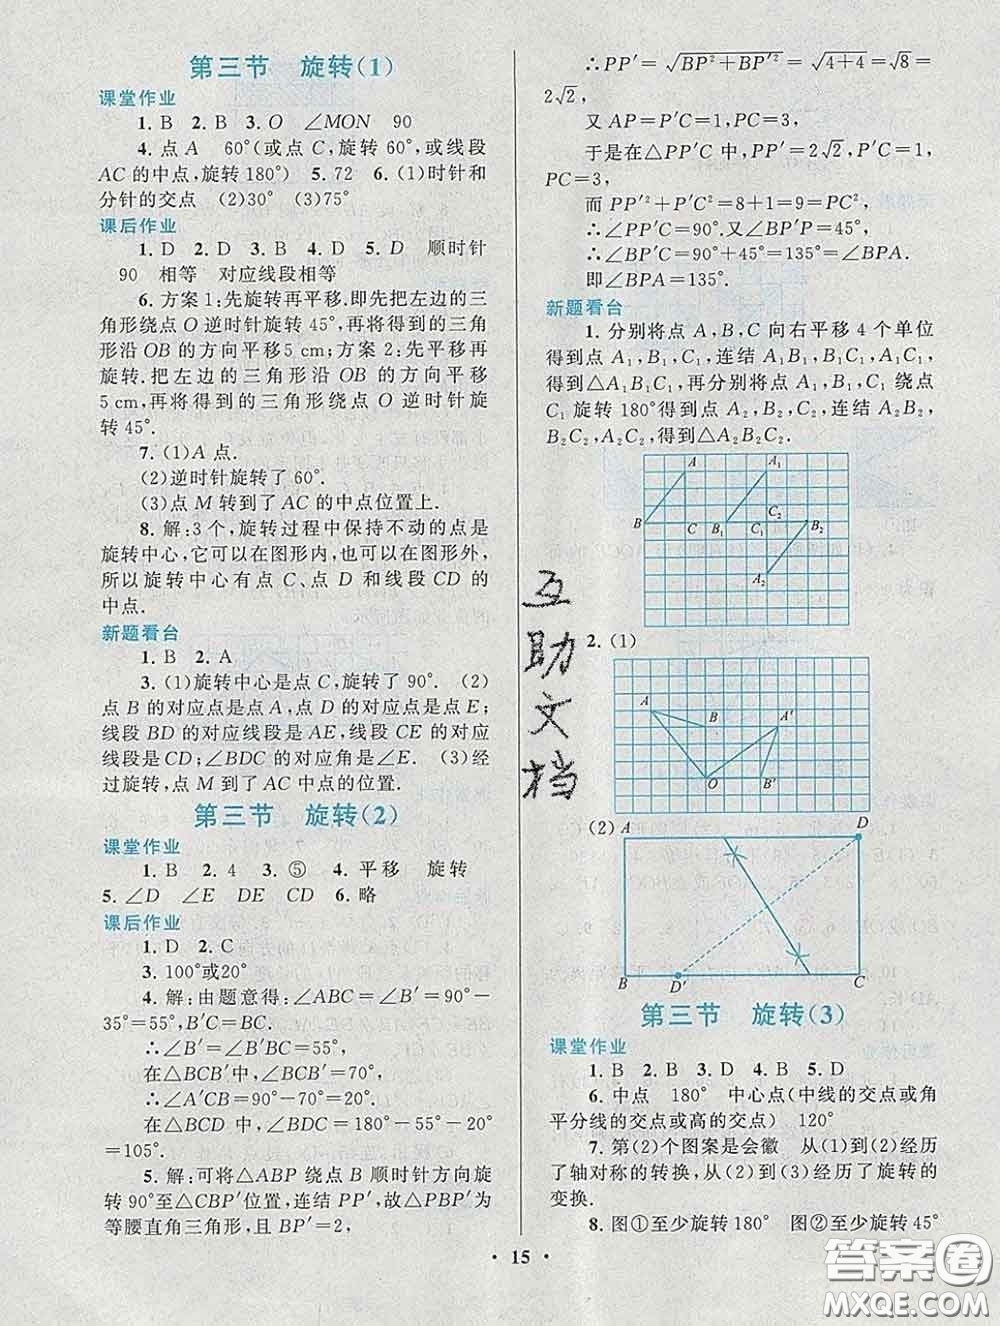 第三节　旋转(1)
课堂作业
1. B  2. B  3. O　∠MON　90
4. 点 A　60°(或点 C,旋转 60°,或线段
AC 的中点,旋转 180°)　5. 72　6. (1)时针和
分针的交点　(2)30°　(3)75°
课后作业
1. D  2. D  3. B  4. D  5. D　顺时针
90　相等　对应线段相等
6. 方案 1:先旋转再平移.即先把左边的三
角形绕点 O 逆时针旋转 45°,再将得到的三角
形沿 OB 的方向平移 5 cm;方案 2:先平移再
旋转.把左边的三角形沿 OB 的方向平移
5 cm,再将得到的三角形绕点 O 逆时针旋
转 45°.
7. (1)A 点.
(2)逆时针旋转了 60°.
(3)点 M 转到了 AC 的中点位置上.
8. 解:3 个,旋转过程中保持不动的点是
旋转中心,它可以在图形内,也可以在图形外,
所以旋转中心有点 C、点 D 和线段 CD 的
中点.
新题看台
1. B  2. A
3. (1)旋转中心是点 C,旋转了 90°.　(2)
点 B 的对应点是点 A,点 D 的对应点是点 E;
线段 BD 的对应线段是 AE,线段 CE 的对应
线段是 CD;∠BDC 的对应角是∠E.　(3)经
过旋转,点 M 到了 AC 中点的位置.
第三节　旋转(2)
课堂作业
1. B  2. 4  3. ⑤  4. 平移　旋转
5. ∠D　∠E　DE　CD　6. 略
课后作业
1. D  2. C
3. 100°或20°
4. 解:由题意得:∠ABC=∠B′=90°-
35°=55°,B′C=BC.
∴∠B′=∠B′BC=55°,
在△BCB′中,∠BCB′=70°,
∴∠A′CB=90°-70°=20°,
在△BCD 中,∠BDC=180°-55°-20°=
105°.
5. 解:可将△ABP 绕点 B 顺时针方向旋
转 90°至△CBP′位置,连结 PP′,故△PBP′为
等腰直角三角形,且 BP′=2,
∴PP′=√BP²+BP′²=√4+4=√8=
2√2,
又 AP=P′C=1,PC=3,
于是在△PP′C 中,PP′=2√2,P′C=1,
PC=3,
而 PP′²+P′C²=8+1=9=PC²
∴∠PP′C=90°.又∠BP′P=45°,
∴∠BP′C=90°+45°=135°=∠BPA.
即∠BPA=135°.
新题看台
1. 分别将点 A,B,C 向右平移 4 个单位
得到点 A₁,B₁,C₁,连结 A₁B₁,B₁C₁,A₁C₁,
得到△A₁B₁C₁,再分别将点 A₁,B₁,C₁ 绕点
C₁ 旋转 180°得到点 A₂,B₂,C₂,连结 A₂B₂,
B₂C₂,A₂C₂,得到△A₂B₂C₂.
A　A₁
C₂
B　C　B₁　C₁　B₂
A₂
2. (1)
A　B　A′
O　B′
(2)　A　D
B　D′　C
第三节　旋转(3)
课堂作业
1. B  2. B  3. D  4. B  5. D
6. 中点　180°　中心点(中线的交点或角
平分线的交点或高的交点)　120°
7. 第(2)个图案是会徽　从(1)到(2)经历
了轴对称的转换,从(2)到(3)经历了旋转的
变换.
8. 图①至少旋转180°　图②至少旋转45°
互助文档
• 15 •
答案圈
MXQE.COM